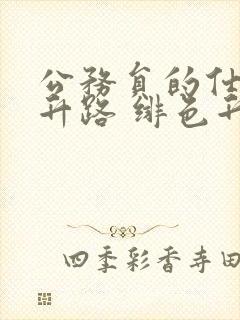 公務員的仕
升路 绯色升
四季彩香寺田